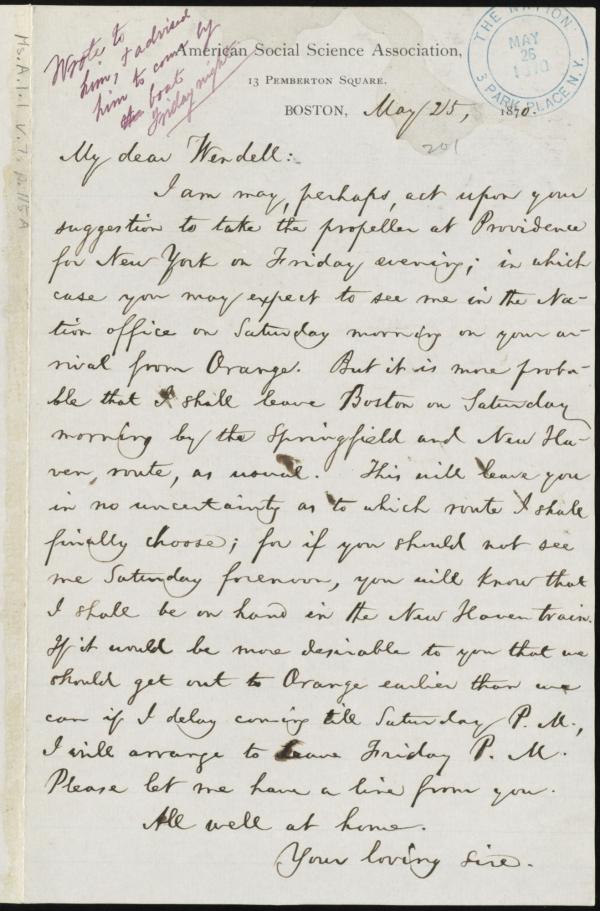 Wrote to
him, & advised
him to come by
the boat
Friday night
American Social Science Association,
13 PEMBERTON SQUARE.
BOSTON, May 25, 1870.
THE NATION.
MAY
26
1870
3 PARK PLACE N.Y.
201
Ms. A. 1. 1 v. 7, p. 115A
My dear Wendell:
I am may, perhaps, act upon your
suggestion to take the propeller at Providence
for New York on Friday evening; in which
case you may expect to see me in the Na-
tion office on Saturday morning on your ar-
rival from Orange. But it is more proba-
ble that I shall leave Boston on Saturday
morning by the Springfield and New Ha-
ven route, as usual. This will leave you
in no uncertainty as to which route I shall
finally choose; for if you should not see
me Saturday forenoon, you will know that
I shall be on hand in the New Haven train.
If it would be more desirable to you that we
should get out to Orange earlier than we
can if I delay coming till Saturday P. M.,
I will arrange to leave Friday P. M.
Please let me have a line from you.
All well at home.
Your loving sire.